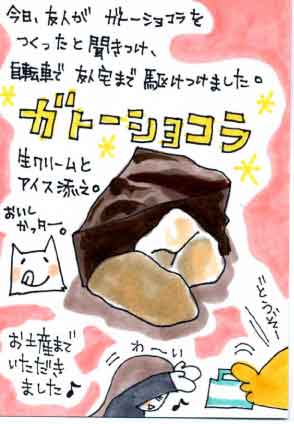 今日、友人が ガトーショコラを
つくったと聞きつけ、
自転車で 友人宅まで 駆けつけました。
ガトーショコラ
生クリームと
アイス添え。
おいし
かッター。
どうぞー
お土産まで
いただき
ました♪
わ〜い
♪